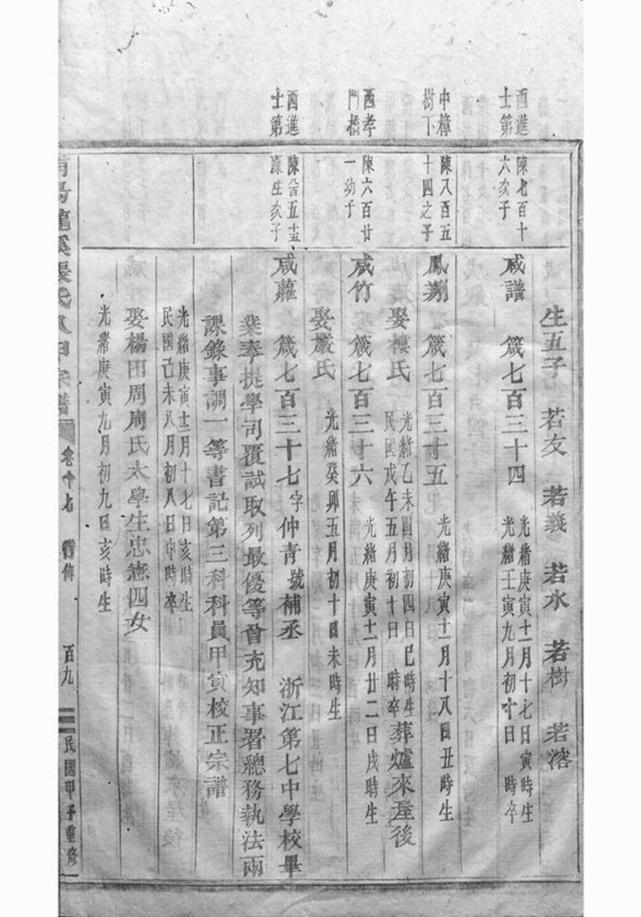 生五子 若友 若義 若水 若樹 若滘
西進士第
陳七百十六次子
咸譜 箴七百三十四
光緒庚寅十一月十七日寅時生
光緒壬寅九月初十日 時卒
中樟樹下
陳八百五十四之子
鳳翔 箴七百三十五
光緒庚寅十一月十八日丑時生
娶樓氏
光緒乙未四月初四日巳時生
民國戊午五月初十日 時卒
葬爐來垤後
西孝門橋
陳六百廿一幼子
咸竹 箴七百三十六
光緒庚寅十一月廿二日戌時生
娶嚴氏
光緒癸卯五月初十日未時生
西進士第
康生次子
咸蘿 箴七百三十七 字仲青 號補丞 浙江第七中學校畢
業奉提學司覆試取列最優等曾充知事署總務執法兩
課錄事調一等書記第三科科員甲寅校正宗譜
光緒庚寅十二月十七日亥時生
民國己未八月初八日申時卒
娶楊田周周氏太學生忠燕四女
光緒庚寅九月初九日亥時生
龍溪張氏 宗譜
百九
民國甲子重修